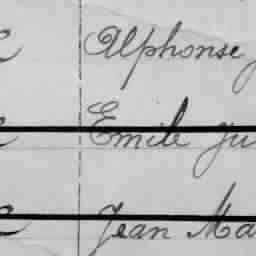 Alphonse
Emile Ju
Jean Ma